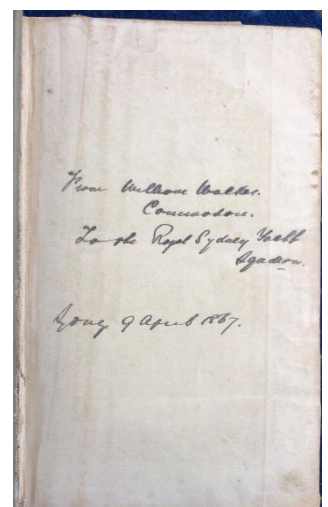 From William Walker.
Commodore.
To the Royal Sydney Yacht
Sqadron.
9 April 1867.